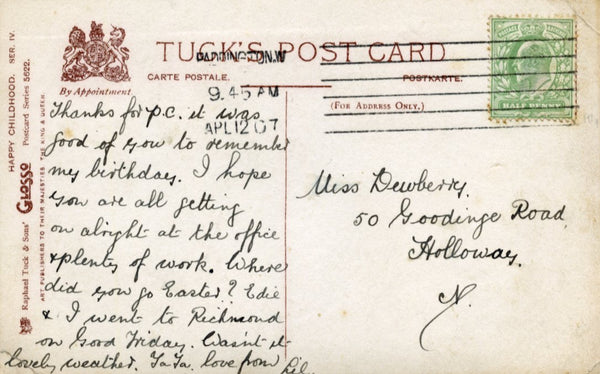 TUCK'S POST CARD
CARTE POSTALE.
POSTKARTE.
By Appointment
(FOR ADDRESS ONLY.)
PADDINGTON.W
9.45 AM
APL 12 07
HALF PENNY
HAPPY CHILDHOOD. SER. IV.
Raphael Tuck & Sons' GLOSSO Postcard Series 5622.
ART PUBLISHERS TO THEIR MAJESTIES THE KING & QUEEN.
Thanks for p.c. it was
good of you to remember
my birthday. I hope
you are all getting
on alright at the office
& plenty of work. Where
did you go Easter? Edie
& I went to Richmond
on Good Friday. Wasn't it
lovely weather. Ta Ta. love from Lil.
Miss Dewberry.
50 Goodinge Road
Holloway.
N.